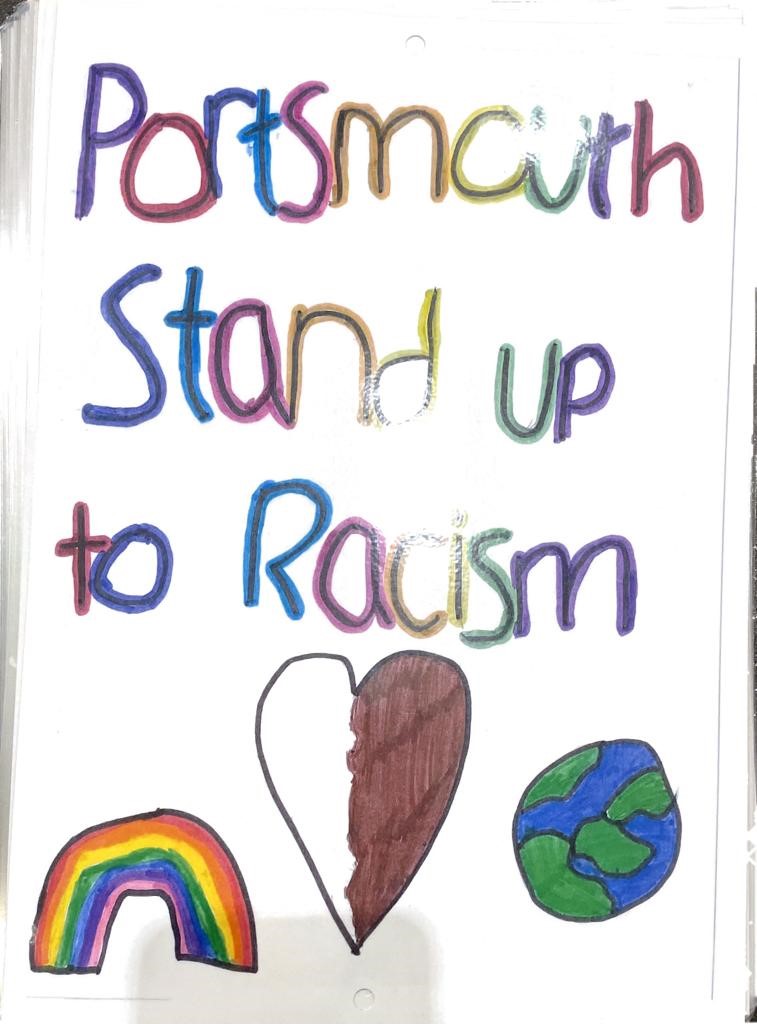 Portsmouth
Stand up
to Racism